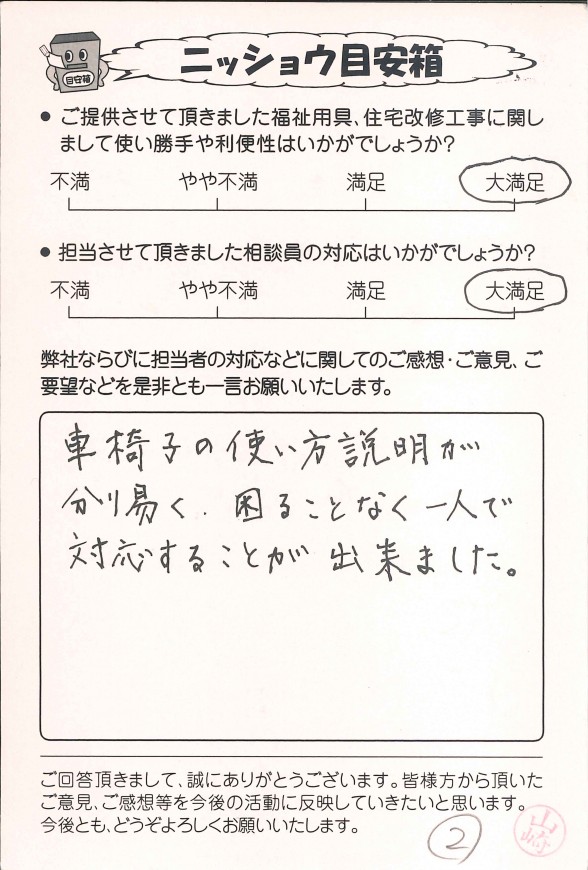 目安箱
ニッショウ目安箱
● ご提供させて頂きました福祉用具、住宅改修工事に関し
まして使い勝手や利便性はいかがでしょうか?
不満 やや不満 満足 大満足
● 担当させて頂きました相談員の対応はいかがでしょうか?
不満 やや不満 満足 大満足
弊社ならびに担当者の対応などに関してのご感想・ご意見、ご
要望などを是非とも一言お願いいたします。
車椅子の使い方説明が
分り易く、困ることなく一人で
対応することが出来ました。
ご回答頂きまして、誠にありがとうございます。皆様方から頂いた
ご意見、ご感想等を今後の活動に反映していきたいと思います。
今後とも、どうぞよろしくお願いいたします。
②
山崎